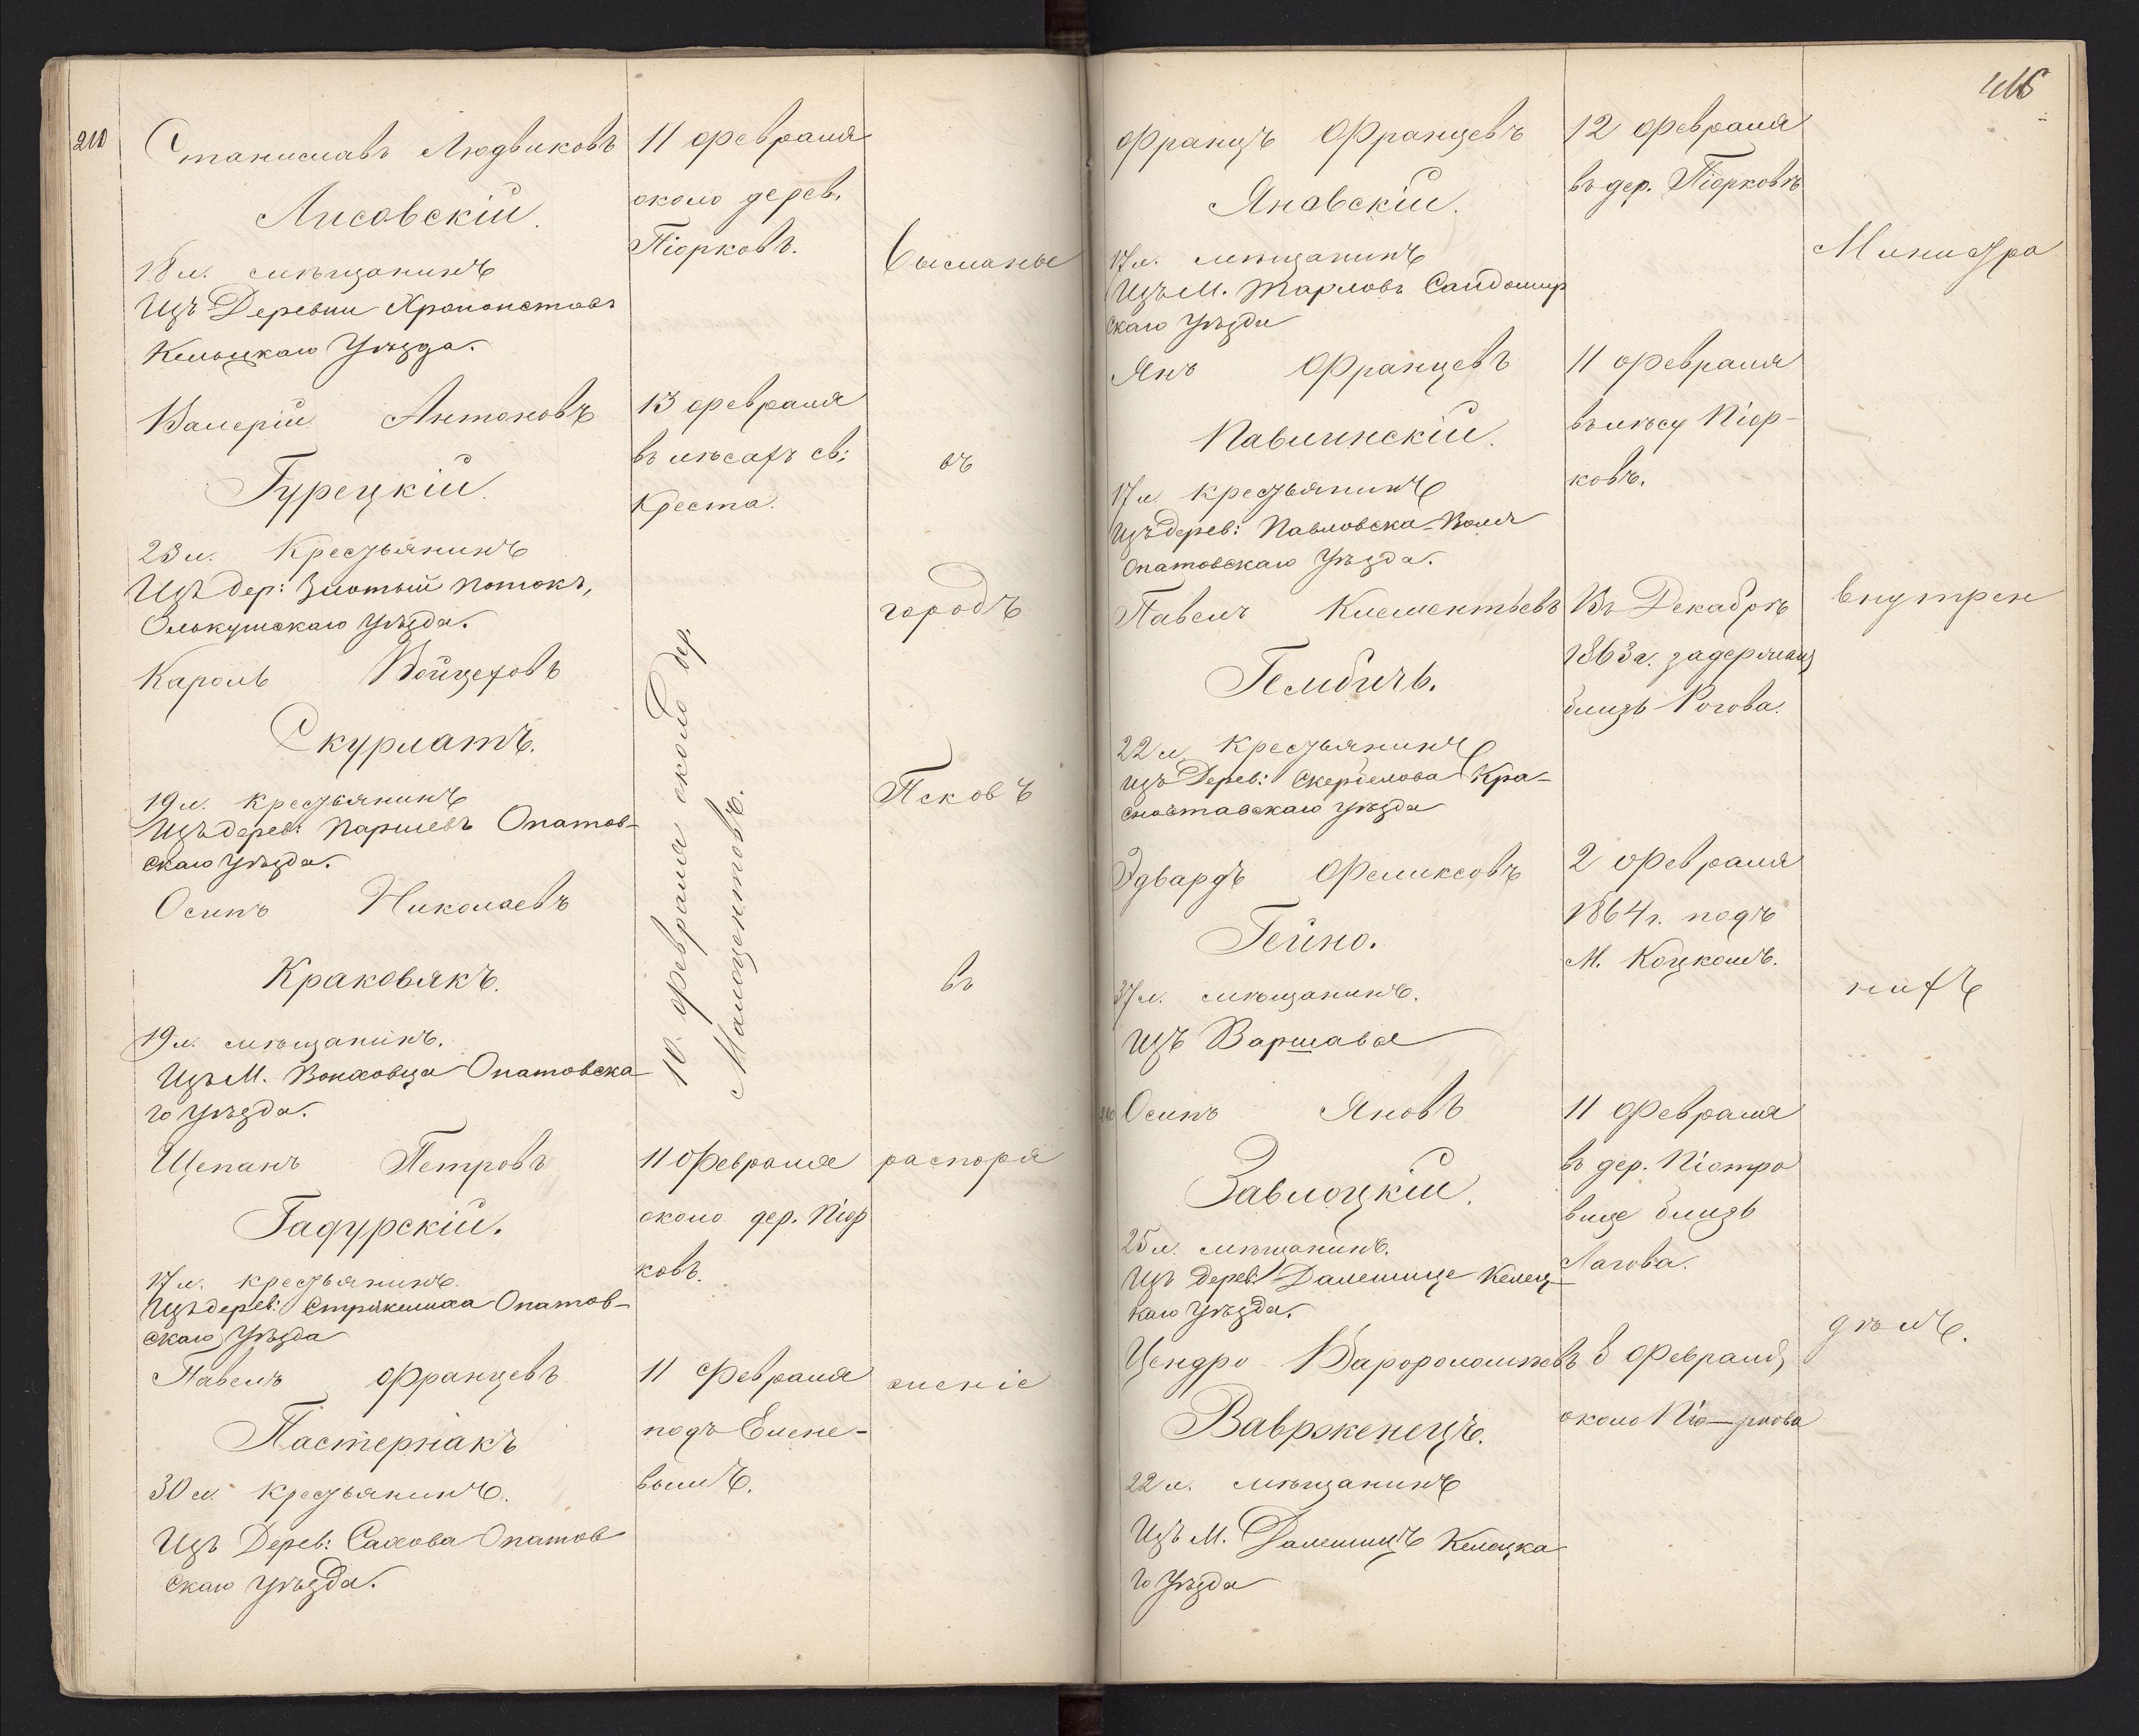 210
Станиславъ Людвиковъ
Лисовскій.
18 л. мѣщанинъ
Изъ Деревни
Кельцкаго Уѣзда.
11 февраля
около дерев.
Піорковъ.
Высланы
Валерій Антоновъ
Гурецкій.
23 л. Крестьянинъ
Изъ дер: Злотый потокъ,
Олькушскаго Уѣзда.
13 февраля
въ лѣсахъ св:
Креста.
въ
городъ
Кароль Войцеховъ
Скурлатъ.
19 л. крестьянинъ
Изъ дерев: Паршевъ Опатов-
скаго Уѣзда.
10. февраля около дер.
Малощентовъ.
Псковъ
Осипъ Николаевъ
Краковякъ.
19 л. мѣщанинъ.
Изъ М. Вонховца Опатовска
го Уѣзда.
въ
Щепанъ Петровъ
Гадурскій.
17 л. крестьянинъ.
Изъ дерев: Опатов-
скаго Уѣзда
11 Февраля
около дер. Піор
ковъ.
распоря
Павелъ Францевъ
Пастернакъ
30 л. крестьянинъ.
Изъ Дерев: Сахова Опатов
скаго уѣзда.
11 Февраля
подъ Елене-
вымъ.
женіе
Францъ Францевъ
Яновскій.
17 л. мѣщанинъ
Изъ М. Жарловъ Сандомир
скаго Уѣзда
12 Февраля
въ дер. Піорковѣ
Министра
Янъ Францевъ
Павлинскій.
17 л. крестьянинъ
Изъ дерев: Павловска-Воля
Опатовскаго Уѣзда.
11 Февраля
въ лѣсу Піор-
ковъ.
Павелъ Клементьевъ
Гембичъ.
22 л. крестьянинъ
изъ Дерев: Кра-
сноставскаго уѣзда
Въ Декабрѣ
1863 г. задержанъ
близь Рогова.
внутрен
Эдвардъ Феликсовъ
Гейно.
37 л. мѣщанинъ.
Изъ Варшавы
2 Февраля
1864 г. подъ
М. Коцкомъ.
нихъ
Осипъ Яновъ
Завлоцкій.
25 л. мѣщанинъ.
Изъ дерев: Далешице Келец-
каго Уѣзда.
11 Февраля
въ дер. Піотро
вице близь
Лагова.
Цендро
Ваврженецъ.
22 л. мѣщанинъ
Изъ М. Далешицъ Келецка
го Уѣзда
8 Февраля,
около
дѣлъ.